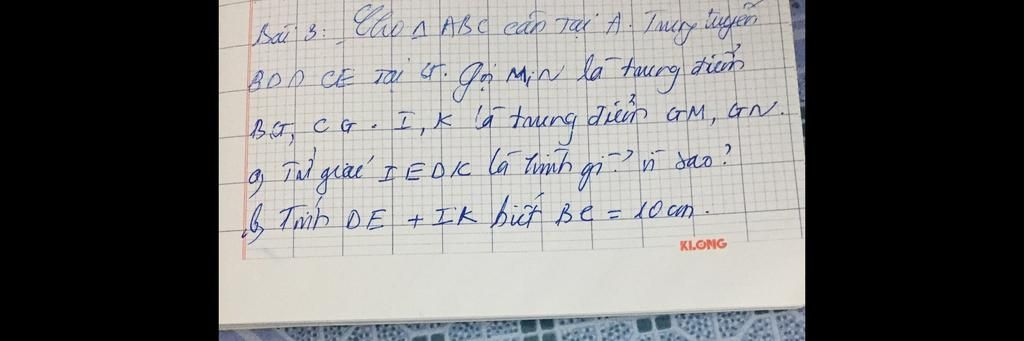 Bài 3: Cho Δ ABC cân tại A. Trung tuyến
BD ∩ CE tại G. Gọi M, N là trung điểm
BG, CG. I, K là trung điểm GM, GN.
a) Tứ giác IEDK là hình gì? vì sao?
b) Tính DE + IK biết BC = 10cm.
KLONG